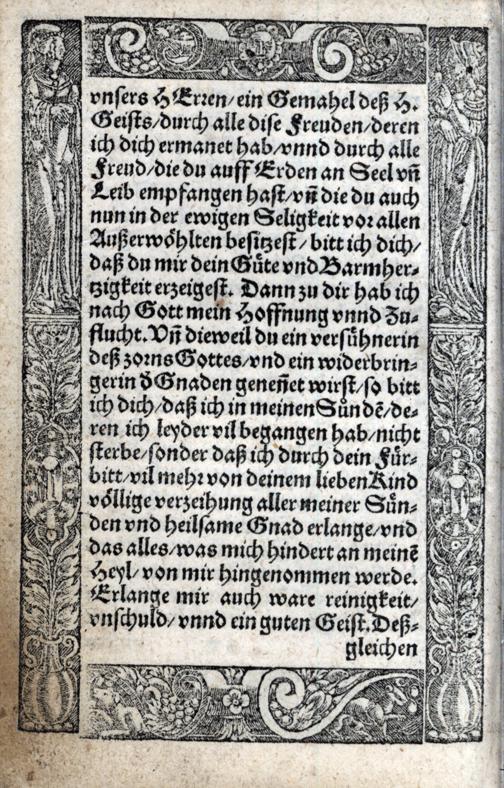 vnsers HErꝛen/ ein Gemahel deß H.
Geists/ durch alle dise Freuden/ deren
ich dich ermanet hab/ vnnd durch alle
Freud/ die du auff Erden an Seel vñ
Leib empfangen hast/ vñ die du auch
nun in der ewigen Seligkeit voꝛ allen
Außerwöhlten besitzest/ bitt ich dich/
daß du mir dein Güte vnd Barmher⸗
tzigkeit erzeigest. Dann zu dir hab ich
nach Gott mein Hoffnung vnnd Zu⸗
flucht. Vñ dieweil du ein versühnerin
deß zorns Gottes/ vnd ein widerbrin⸗
gerin d̕ Gnaden geneñet wirst/ so bitt
ich dich/ daß ich in meinen Sündẽ/ de⸗
ren ich leyder vil begangen hab/ nicht
sterbe/ sonder daß ich durch dein Für⸗
bitt/ vil mehꝛ von deinem lieben Kind
völlige verzeihung aller meiner Sün⸗
den vnd heilsame Gnad erlange/ vnd
das alles/ was mich hindert an meinẽ
Heyl/ von mir hingenommen werde.
Erlange mir auch ware reinigkeit/
vnschuld/ vnnd ein guten Geist. Deß⸗
gleichen